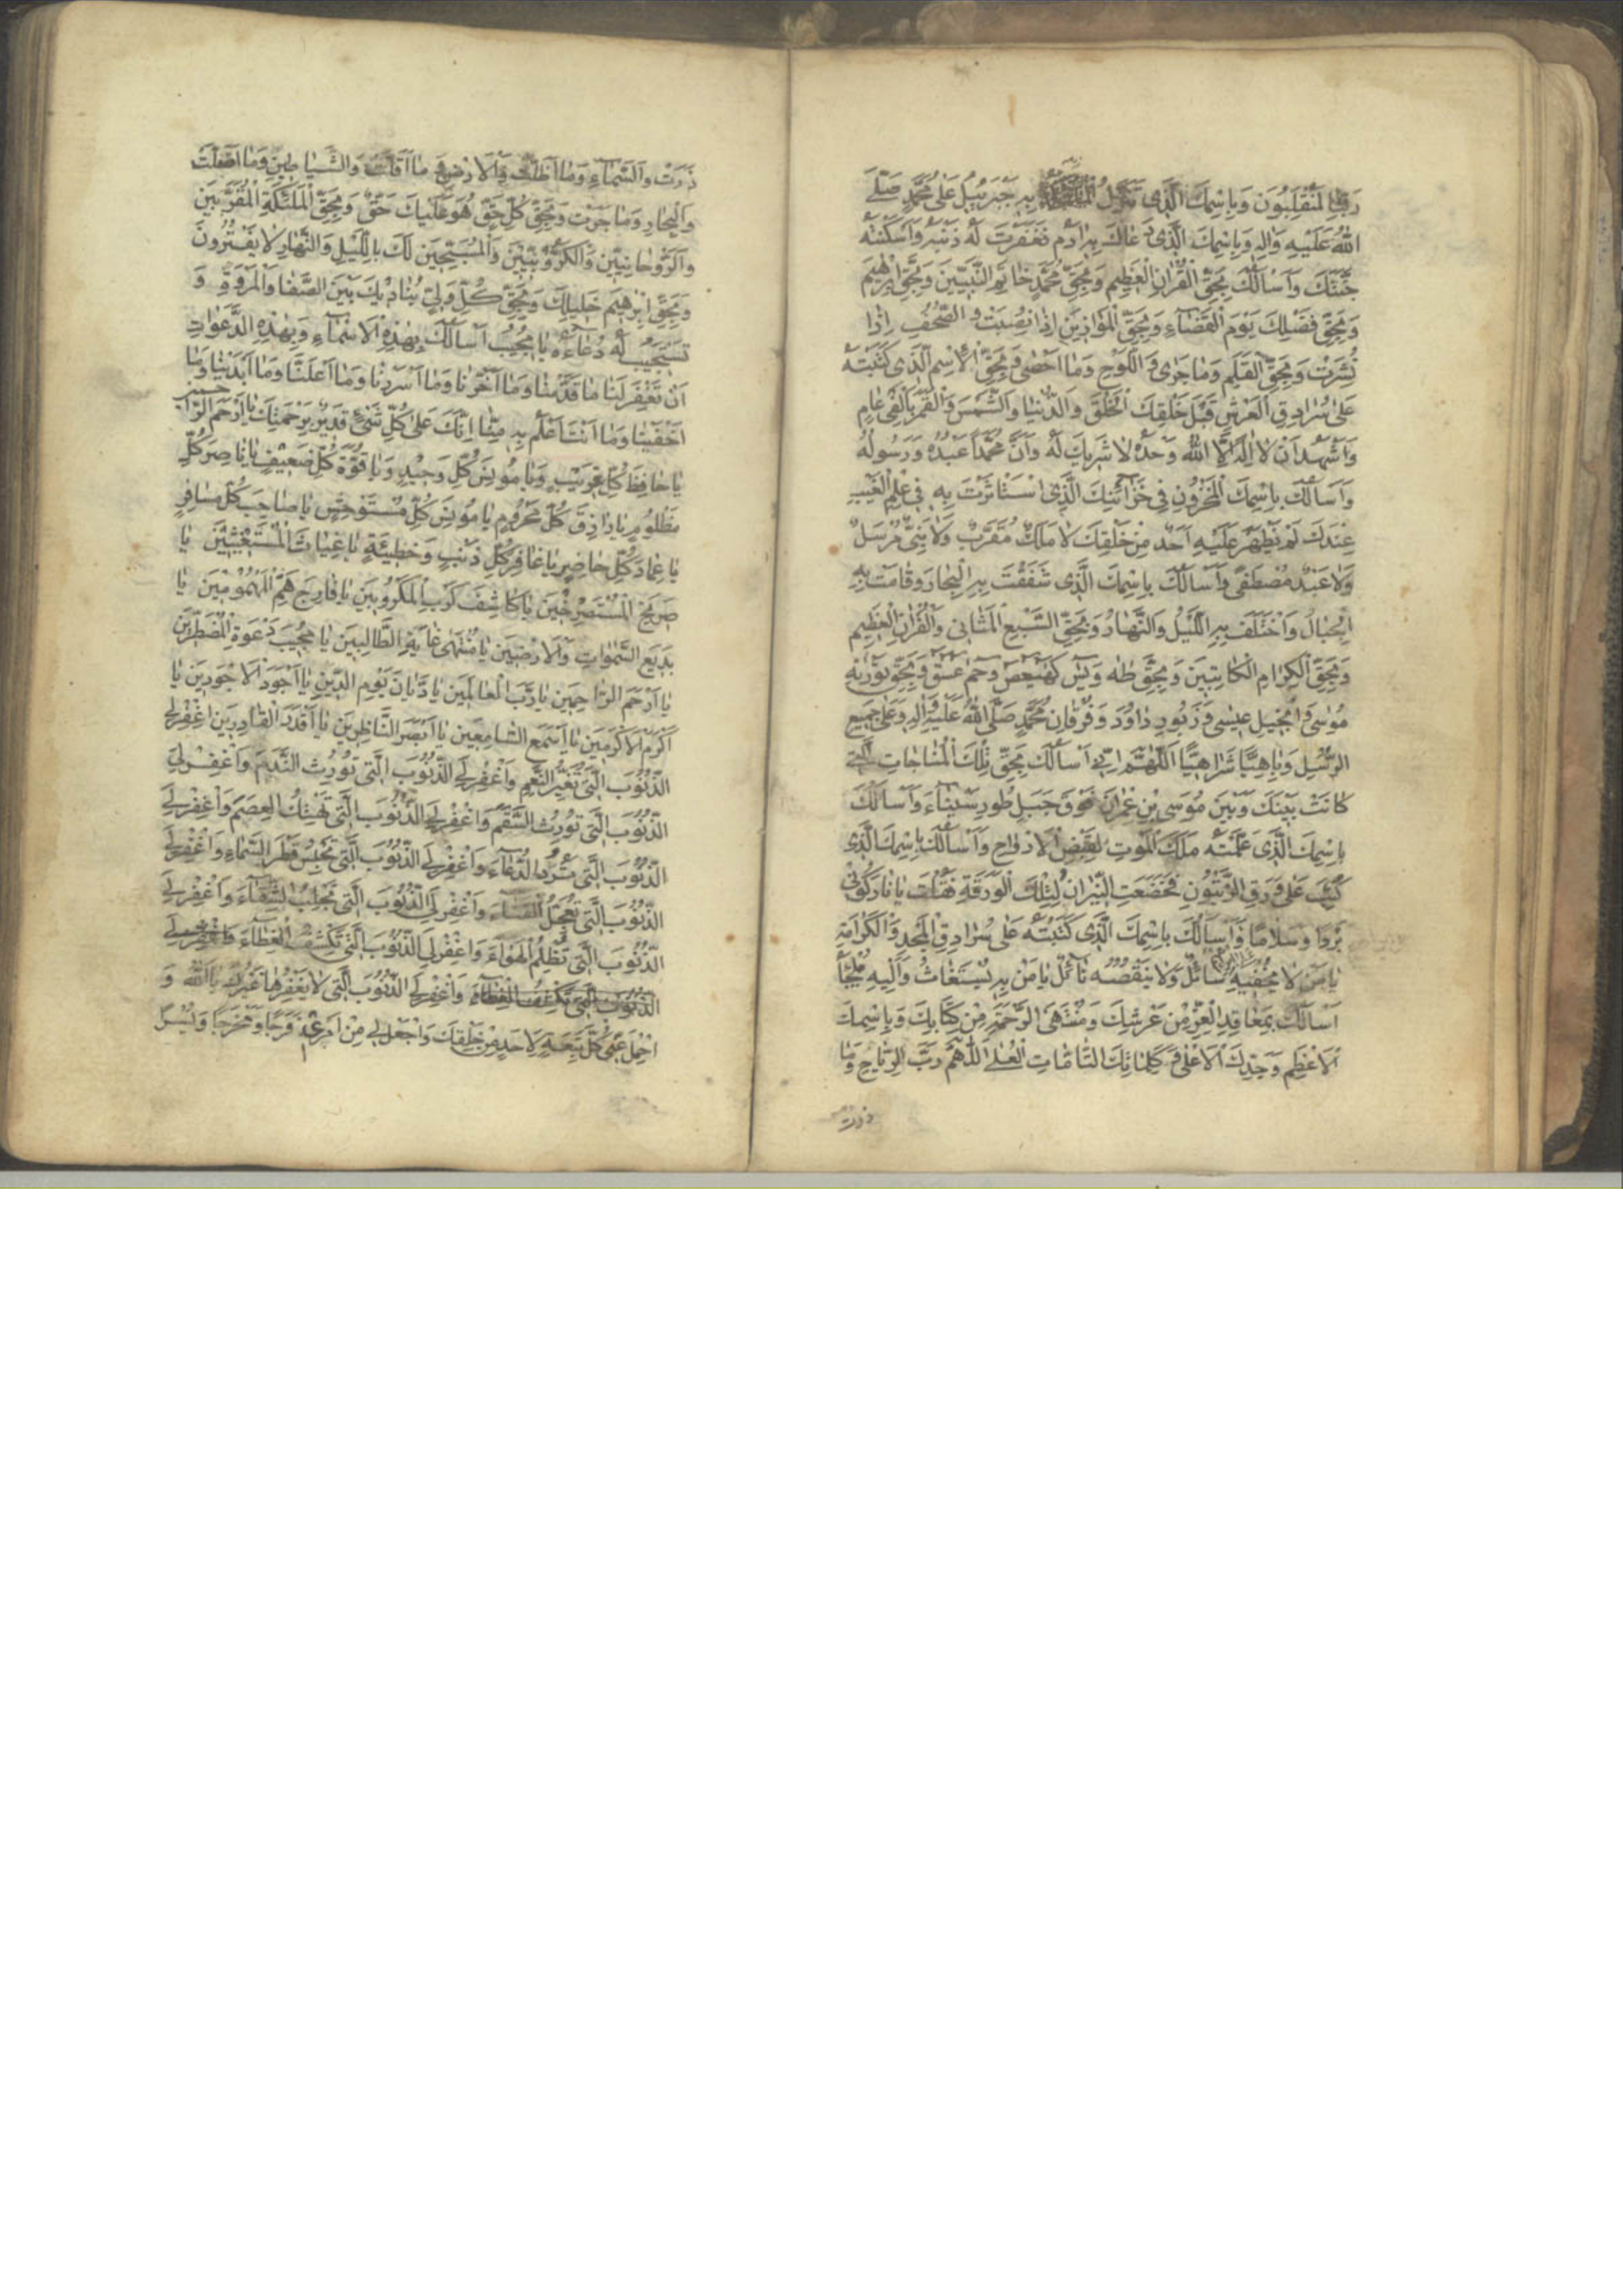 رَبِّنَا لَمُنْقَلِبُونَ وَبِاسْمِكَ الَّذِى تَنَزَّلُ بِهِ جَبْرَئِيلُ عَلىٰ مُحَمَّدٍ صَلَّى
اللهُ عَلَيْهِ وَآلِهِ وَبِاسْمِكَ الَّذِى دَعَاكَ بِهِ آدَمُ فَغَفَرْتَ لَهُ ذَنْبَهُ وَاَسْكَنْتَهُ
جَنَّتَكَ وَاَسْاَلُكَ بِحَقِّ الْقُرْآنِ الْعَظِيمِ وَبِحَقِّ مُحَمَّدٍ خَاتَمِ النَّبِيِّينَ وَبِحَقِّ اِبْرٰهِيمَ
وَبِحَقِّ فَضْلِكَ يَوْمَ الْقَضَاءِ وَبِحَقِّ الْمَوَازِينِ اِذَا نُصِبَتْ وَالصُّحُفِ اِذَا
نُشِرَتْ وَبِحَقِّ الْقَلَمِ وَمَا جَرىٰ وَاللَّوْحِ وَمَا اَحْصىٰ وَبِحَقِّ الْاِسْمِ الَّذِى كَتَبْتَهُ
عَلىٰ سُرَادِقِ الْعَرْشِ قَبْلَ خَلْقِكَ الْخَلْقَ وَالدُّنْيَا وَالشَّمْسَ وَالْقَمَرَ بِاَلْفَىْ عَامٍ
وَاَشْهَدُ اَنْ لَا اِلٰهَ اِلَّا اللهُ وَحْدَهُ لَا شَرِيكَ لَهُ وَاَنَّ مُحَمَّداً عَبْدُهُ وَرَسُولُهُ
وَاَسْاَلُكَ بِاسْمِكَ الْمَخْزُونِ فِى خَزَآئِنِكَ الَّذِى اسْتَأْثَرْتَ بِهِ فِى عِلْمِ الْغَيْبِ
عِنْدَكَ لَمْ يَظْهَرْ عَلَيْهِ اَحَدٌ مِنْ خَلْقِكَ لَا مَلَكٌ مُقَرَّبٌ وَلَا نَبِىٌّ مُرْسَلٌ
وَلَا عَبْدٌ مُصْطَفًى وَاَسْاَلُكَ بِاسْمِكَ الَّذِى شَقَقْتَ بِهِ الْبِحَارَ وَقَامَتْ بِهِ
الْجِبَالُ وَاخْتَلَفَ بِهِ اللَّيْلُ وَالنَّهَارُ وَبِحَقِّ السَّبْعِ الْمَثَانِى وَالْقُرْآنِ الْعَظِيمِ
وَبِحَقِّ الْكِرَامِ الْكَاتِبِينَ وَبِحَقِّ طٰهٰ وَيٰسٓ وَكٓهٰيٰعٓصٓ وَحٰمٓ عٓسٓقٓ وَبِحَقِّ تَوْرٰيةِ
مُوسىٰ وَاِنْجِيلِ عِيسىٰ وَزَبُورِ دَاوُدَ وَفُرْقَانِ مُحَمَّدٍ صَلَّى اللهُ عَلَيْهِ وَآلِهِ وَعَلىٰ جَمِيعِ
الرُّسُلِ وَبِاهِيّاً شَرَاهِيّاً اَللّٰهُمَّ اِنِّى اَسْاَلُكَ بِحَقِّ تِلْكَ الْمُنَاجَاتِ الَّتِى
كَانَتْ بَيْنَكَ وَبَيْنَ مُوسَى بْنِ عِمْرَانَ فَوْقَ جَبَلِ طُورِ سَيْنَاءَ وَاَسْاَلُكَ
بِاسْمِكَ الَّذِى عَلَّمْتَهُ مَلَكَ الْمَوْتِ لِقَبْضِ الْاَرْوَاحِ وَاَسْاَلُكَ بِاسْمِكَ الَّذِى
كُتِبَ عَلىٰ وَرَقِ الزَّيْتُونِ فَخَضَعَتِ النِّيرَانُ لِتِلْكَ الْوَرَقَةِ فَقُلْتَ يَا نَارُ كُونِى
بَرْداً وَسَلَاماً وَاَسْاَلُكَ بِاسْمِكَ الَّذِى كَتَبْتَهُ عَلىٰ سُرَادِقِ الْمَجْدِ وَالْكَرَامَةِ
يَا مَنْ لَا يُحْفِيهِ سَائِلٌ وَلَا يَنْقُصُهُ نَآئِلٌ يَا مَنْ بِهِ يُسْتَغَاثُ وَاِلَيْهِ يُلْجَأُ
اَسْاَلُكَ بِمَعَاقِدِ الْعِزِّ مِنْ عَرْشِكَ وَمُنْتَهَى الرَّحْمَةِ مِنْ كِتَابِكَ وَبِاسْمِكَ
الْاَعْظَمِ وَجَدِّكَ الْاَعْلىٰ وَكَلِمَاتِكَ التَّامَّاتِ الْعُلىٰ اَللّٰهُمَّ رَبَّ الرِّيَاحِ وَمَا
ذرت
ذَرَتْ وَالسَّمَاءِ وَمَا اَظَلَّتْ وَالْاَرْضِ وَمَا اَقَلَّتْ وَالشَّيَاطِينِ وَمَا اَضَلَّتْ
وَالْبِحَارِ وَمَا جَرَتْ وَبِحَقِّ كُلِّ حَقٍّ هُوَ عَلَيْكَ حَقٌّ وَبِحَقِّ الْمَلٰئِكَةِ الْمُقَرَّبِينَ
وَالرَّوْحَانِيِّينَ وَالْكَرُّوبِيِّينَ وَالْمُسَبِّحِينَ لَكَ بِاللَّيْلِ وَالنَّهَارِ لَا يَفْتُرُونَ
وَبِحَقِّ اِبْرٰهِيمَ خَلِيلِكَ وَبِحَقِّ كُلِّ وَلِىٍّ يُنَادِيكَ بَيْنَ الصَّفَا وَالْمَرْوَةِ وَ
تَسْتَجِيبُ لَهُ دُعَاءَهُ يَا مُجِيبُ اَسْاَلُكَ بِهٰذِهِ الْاَسْمَاءِ وَبِهٰذِهِ الدَّعَوَاتِ
اَنْ تَغْفِرَ لَنَا مَا قَدَّمْنَا وَمَا اَخَّرْنَا وَمَا اَسْرَرْنَا وَمَا اَعْلَنَّا وَمَا اَبْدَيْنَا وَمَا
اَخْفَيْنَا وَمَا اَنْتَ اَعْلَمُ بِهِ مِنَّا اِنَّكَ عَلىٰ كُلِّ شَىْءٍ قَدِيرٌ بِرَحْمَتِكَ يَا اَرْحَمَ الرَّاحِمِينَ
يَا حَافِظَ كُلِّ غَرِيبٍ وَيَا مُونِسَ كُلِّ وَحِيدٍ وَيَا قُوَّةَ كُلِّ ضَعِيفٍ يَا نَاصِرَ كُلِّ
مَظْلُومٍ يَا رَازِقَ كُلِّ مَحْرُومٍ يَا مُونِسَ كُلِّ مُسْتَوْحِشٍ يَا صَاحِبَ كُلِّ مُسَافِرٍ
يَا عِمَادَ كُلِّ حَاضِرٍ يَا غَافِرَ كُلِّ ذَنْبٍ وَخَطِيئَةٍ يَا غِيَاثَ الْمُسْتَغِيثِينَ يَا
صَرِيخَ الْمُسْتَصْرِخِينَ يَا كَاشِفَ كَرْبِ الْمَكْرُوبِينَ يَا فَارِجَ هَمِّ الْمَهْمُومِينَ يَا
بَدِيعَ السَّمٰوَاتِ وَالْاَرَضِينَ يَا مُنْتَهىٰ غَايَةِ الطَّالِبِينَ يَا مُجِيبَ دَعْوَةِ الْمُضْطَرِّينَ
يَا اَرْحَمَ الرَّاحِمِينَ يَا رَبَّ الْعَالَمِينَ يَا دَيَّانَ يَوْمِ الدِّينِ يَا اَجْوَدَ الْاَجْوَدِينَ يَا
اَكْرَمَ الْاَكْرَمِينَ يَا اَسْمَعَ السَّامِعِينَ يَا اَبْصَرَ النَّاظِرِينَ يَا اَقْدَرَ الْقَادِرِينَ اغْفِرْ لِىَ
الذُّنُوبَ الَّتِى تُغَيِّرُ النِّعَمَ وَاغْفِرْ لِىَ الذُّنُوبَ الَّتِى تُورِثُ النَّدَمَ وَاغْفِرْ لِىَ
الذُّنُوبَ الَّتِى تُورِثُ السَّقَمَ وَاغْفِرْ لِىَ الذُّنُوبَ الَّتِى تَهْتِكُ الْعِصَمَ وَاغْفِرْ لِىَ
الذُّنُوبَ الَّتِى تَرُدُّ الدُّعَاءَ وَاغْفِرْ لِىَ الذُّنُوبَ الَّتِى تَحْبِسُ قَطْرَ السَّمَاءِ وَاغْفِرْ لِىَ
الذُّنُوبَ الَّتِى تُعَجِّلُ الْفَنَاءَ وَاغْفِرْ لِىَ الذُّنُوبَ الَّتِى تَجْلِبُ الشَّقَاءَ وَاغْفِرْ لِىَ
الذُّنُوبَ الَّتِى تُظْلِمُ الْهَوَاءَ وَاغْفِرْ لِىَ الذُّنُوبَ الَّتِى تَكْشِفُ الْغِطَاءَ وَاغْفِرْ لِىَ
الذُّنُوبَ الَّتِى تَكْشِفُ الْغِطَاءَ وَاغْفِرْ لِىَ الذُّنُوبَ الَّتِى لَا يَغْفِرُهَا غَيْرُكَ يَا اَللهُ وَ
احْمِلْ عَنِّى كُلَّ تَبِعَةٍ لِاَحَدٍ مِنْ خَلْقِكَ وَاجْعَلْ لِى مِنْ اَمْرِى فَرَجاً وَمَخْرَجاً وَيُسْراً